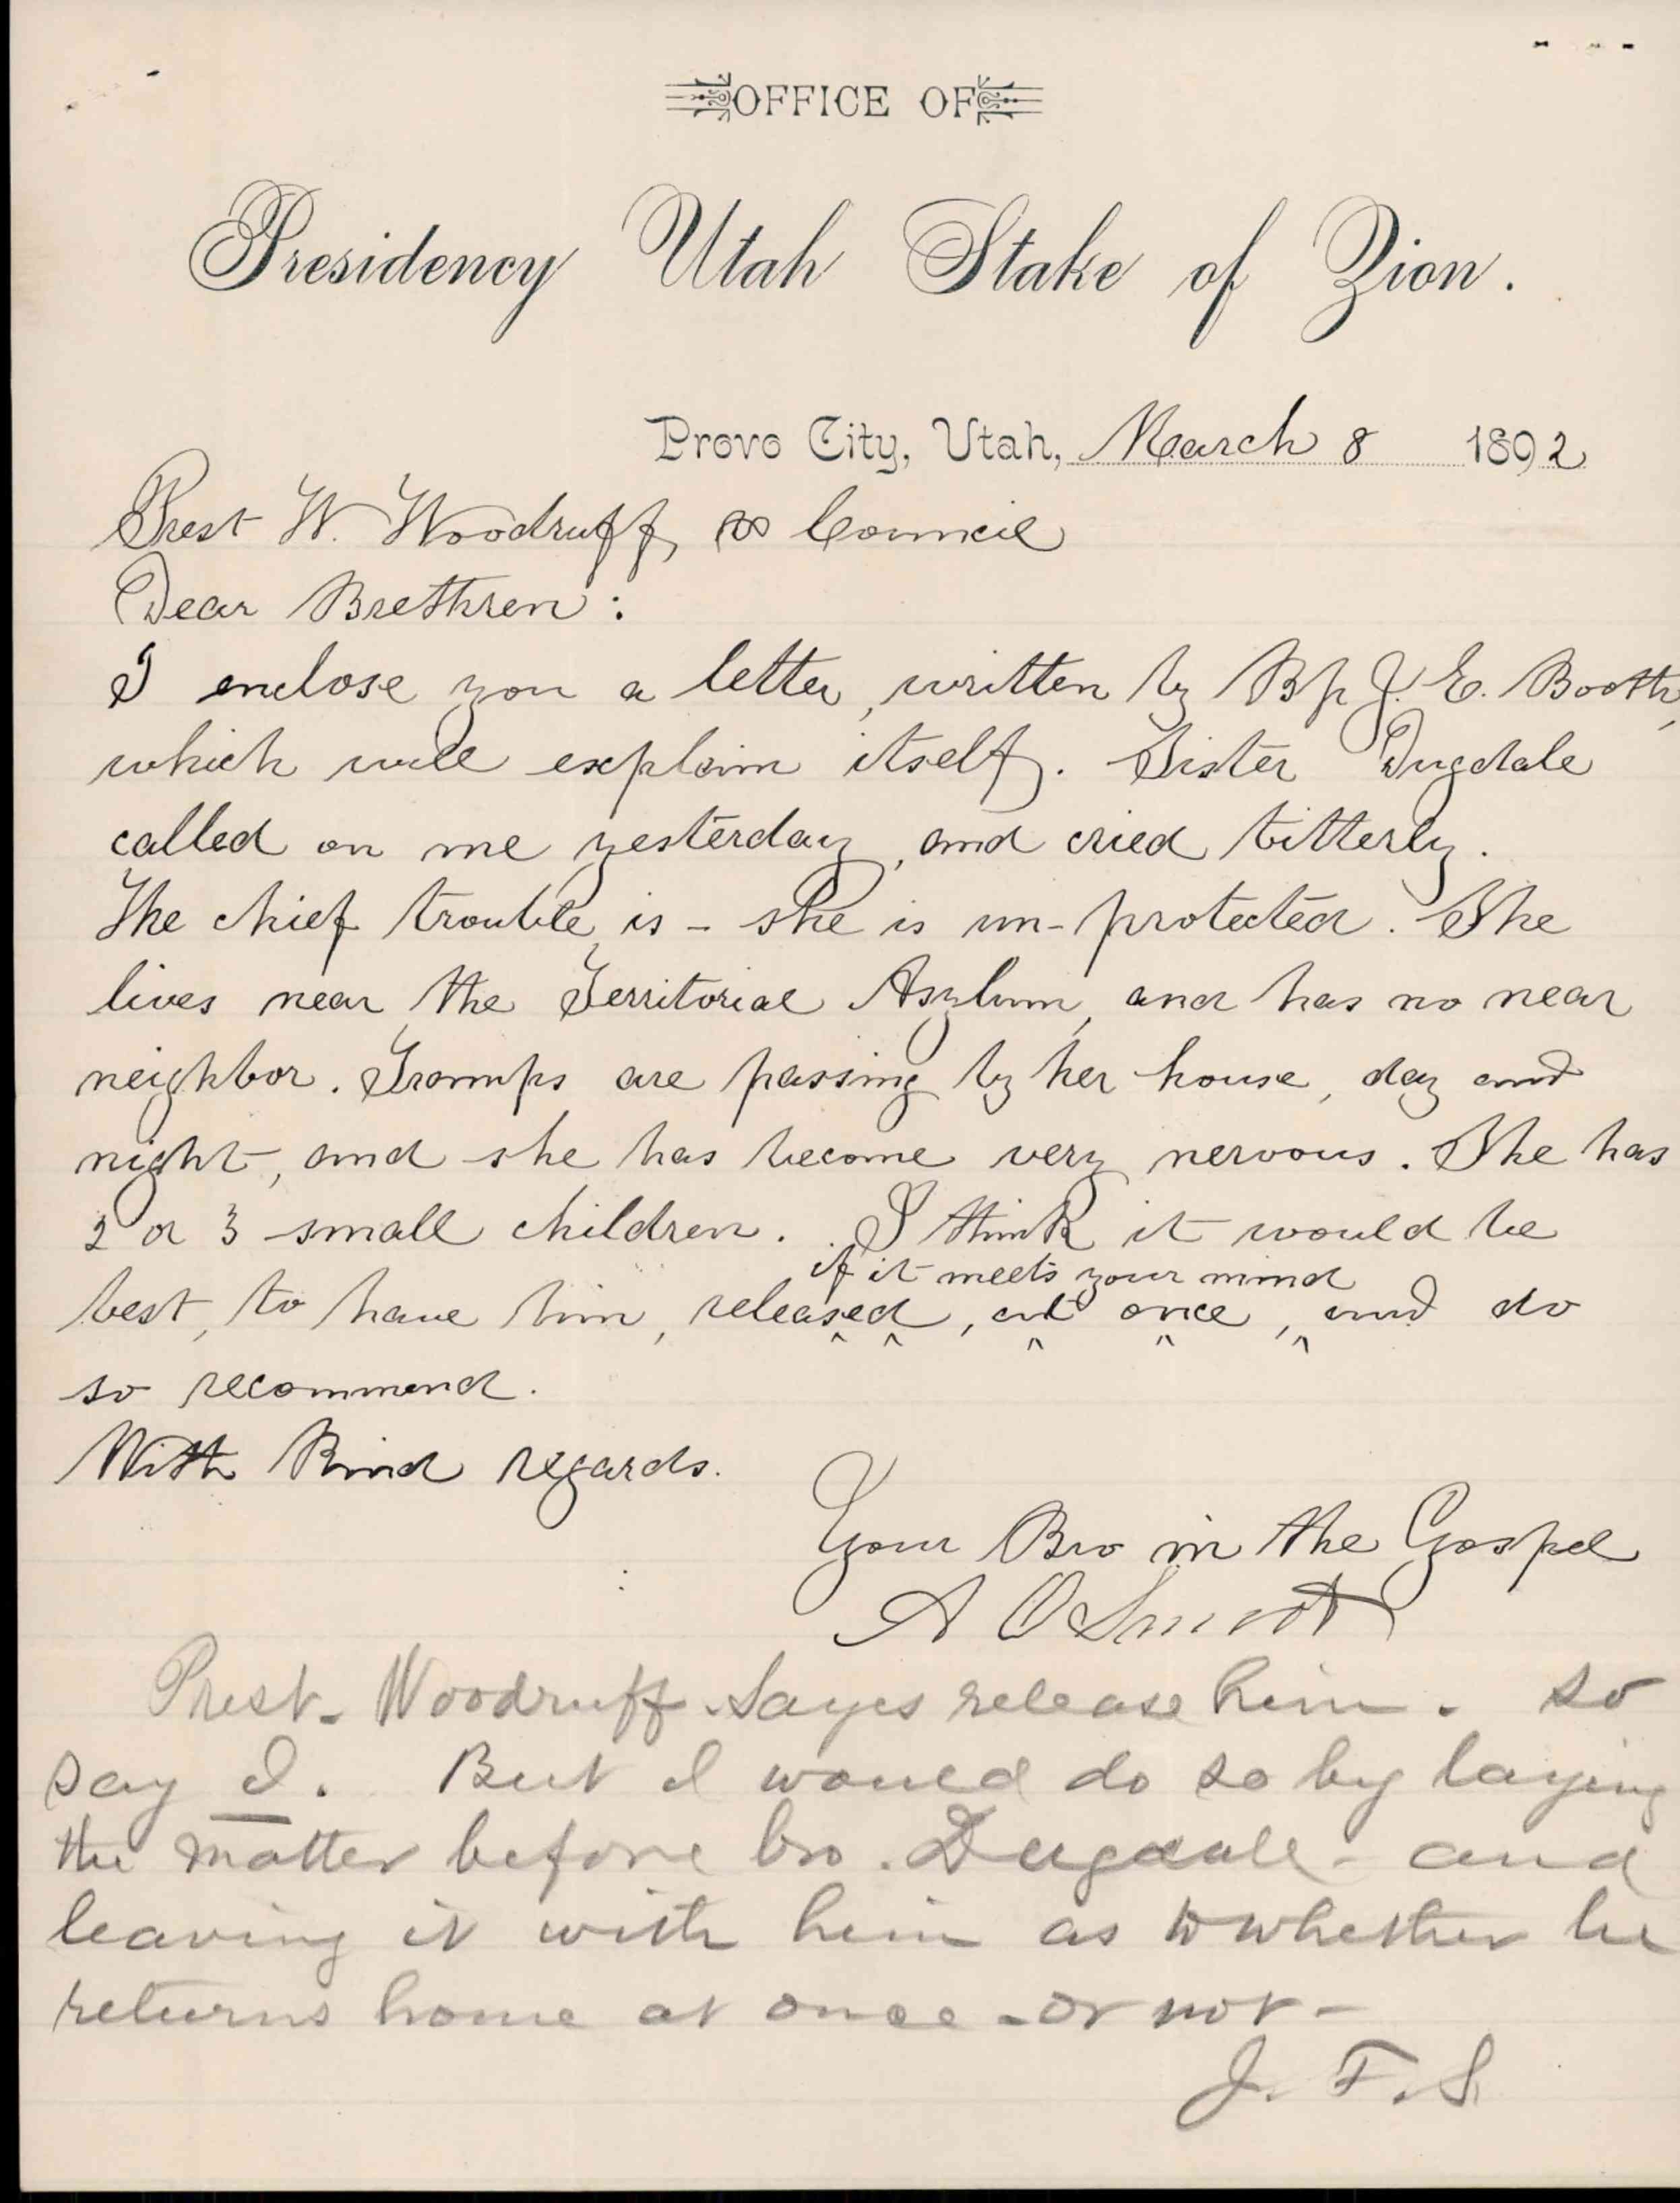 OFFICE OF
Presidency Utah Stake of Zion.
Provo City, Utah, March 8 1892
Prest W. Woodruff, & Council
Dear Brethren:
I enclose you a letter, written by Bp J. E. Booth,
which will explain itself. Sister Dugdale
called on me yesterday, and cried bitterly.
The chief trouble, is - she is un-protected. She
lives near the Territorial Asylum, and has no near
neighbor. Tramps are passing by her house, day and
night, and she has become very nervous. She has
2 or 3 small children. I think it would be
if it meets your mind
best, to have him, released, at once, and do
so recommend.
With Kind regards.
Your Bro in the Gospel
A O Smoot
Prest. Woodruff sayes release him. so
say I. But I would do so by laying
the matter before bro. Dugdale - and
leaving it with him as to whether he
returns home at once - or not -
J. F. S.